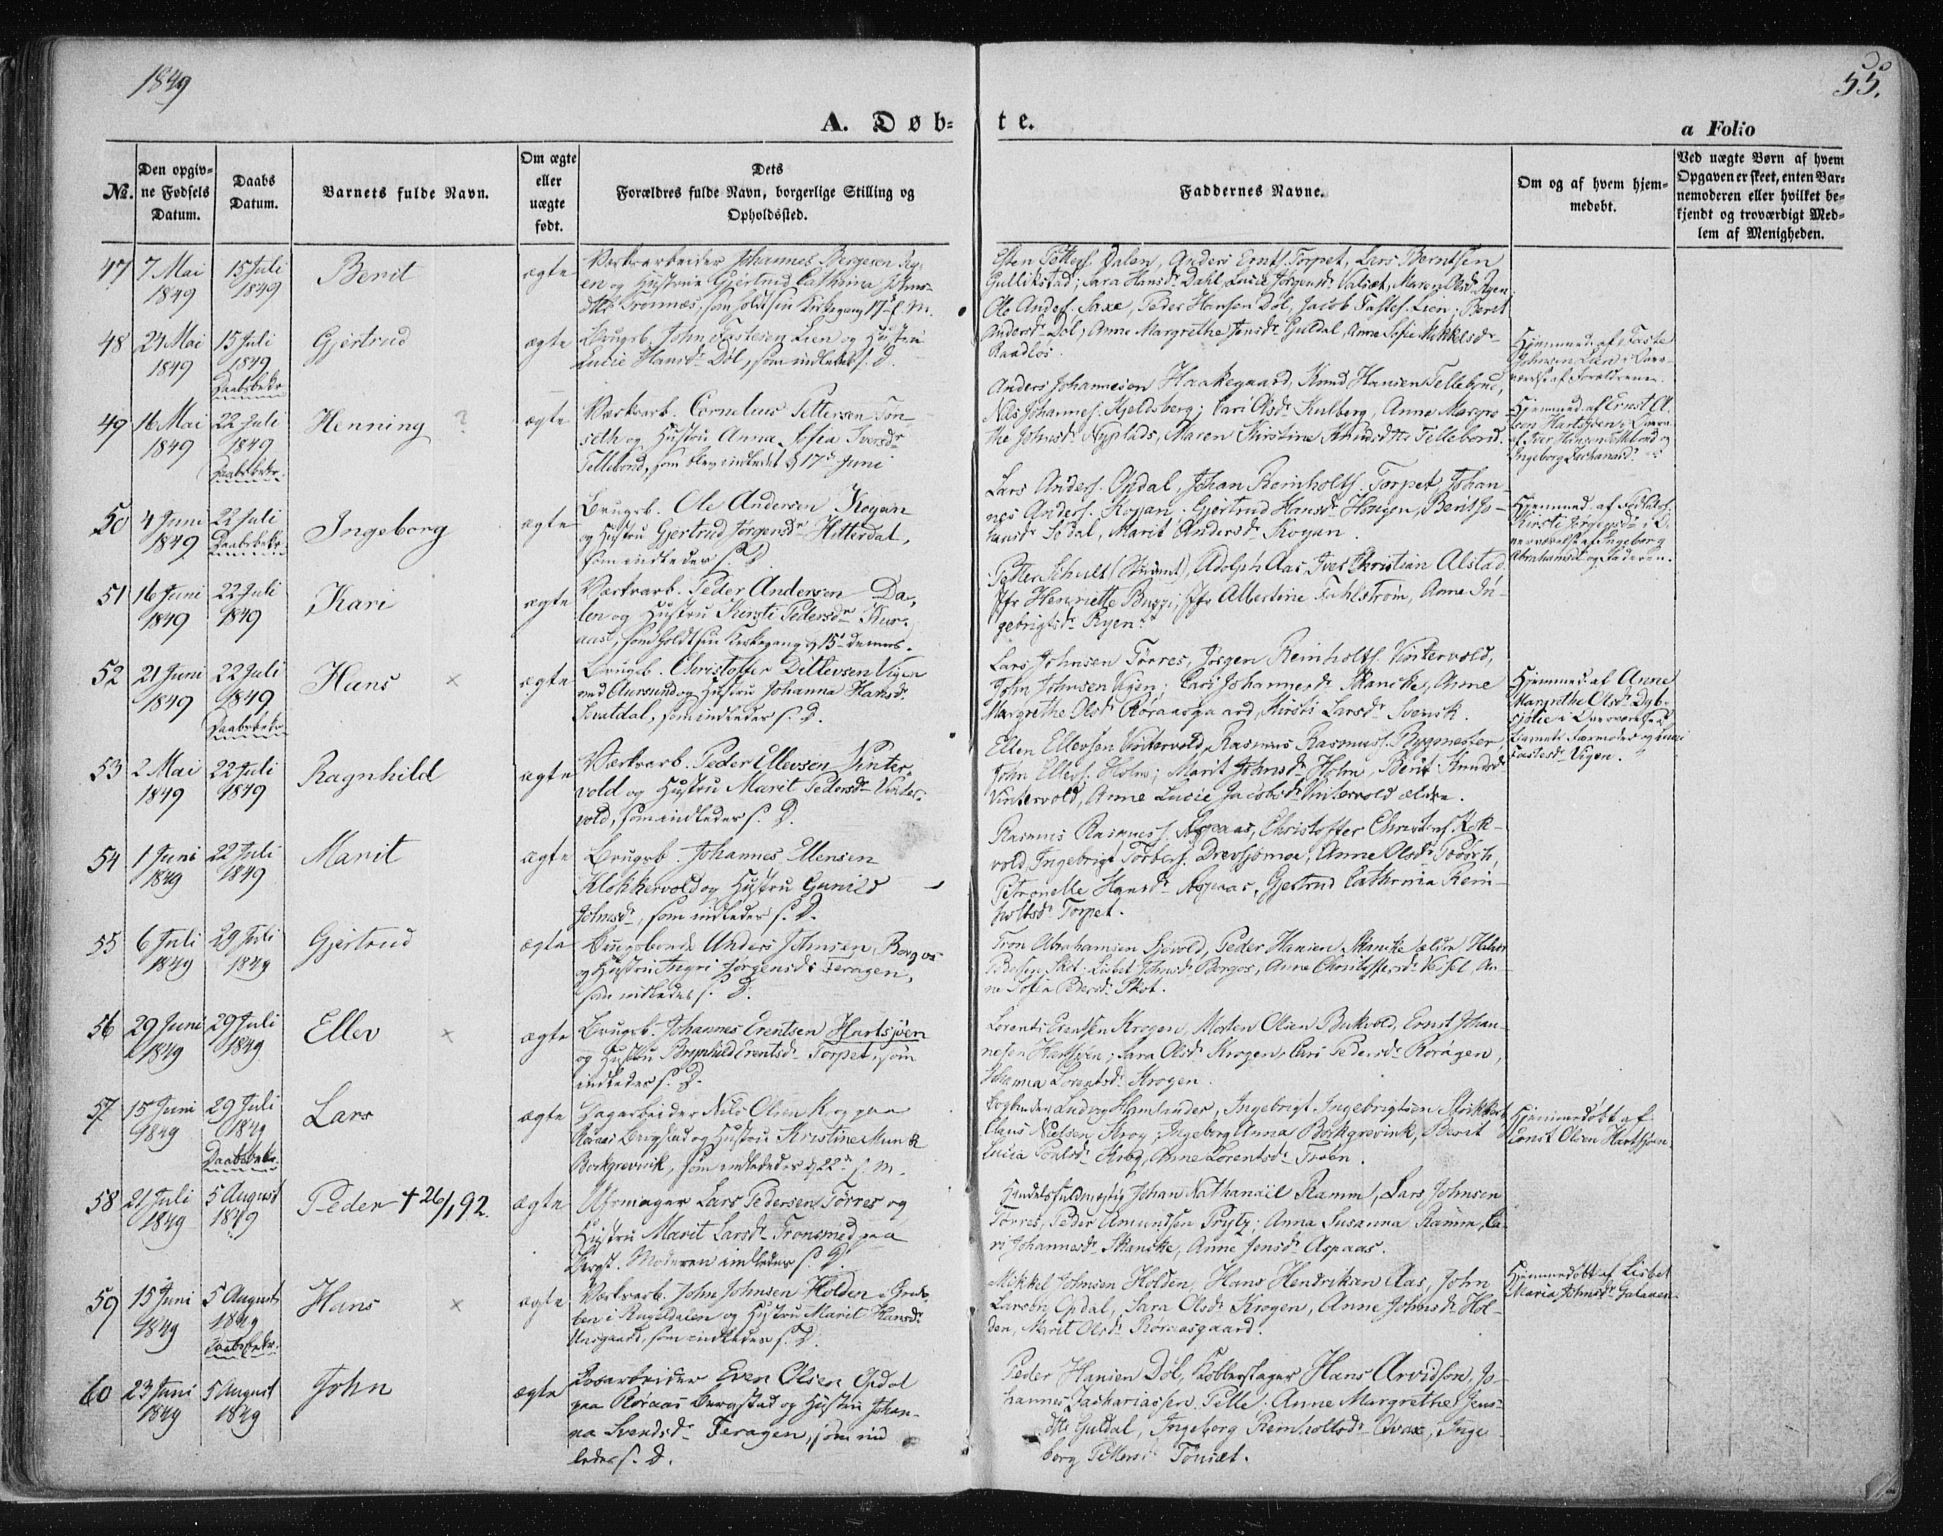 1849
55.
A. Døb-
te.
a Folio
№.
Den opgiv-
ne Fødsels
Datum.
Daabs
Datum.
Barnets fulde Navn.
Om ægte
eller
uægte
født.
Dets
Forældres fulde Navn, borgerlige Stilling og
Opholdssted.
Faddernes Navne.
Om og af hvem hjem-
medøbt.
Ved uægte Børn af hvem
Opgaven er skeet, enten Bar-
nemoderen eller hvilket be-
kjendt og troværdigt Med-
lem af Menigheden.
47 7 Mai 1849 15 Juli 1849 Berit ægte
Værksarbeider Johannes Bergesen Ry-
en og Hustrue Gjertrud Cathrina Johns-
som holdt sin Kirkegang 17 f. M.
Esten Petters. Dalen, Anders Ernts. Torpet, Lars Berntsen
Gullikstad; Sara Hansdr Dahl, Lucie Jørgensdr Valset, Maren Olsdr Ryen
48 24 Mai 1849 15 Juli 1849 Daabsbekr. Gjertrud ægte
Brugsb. John Fastesen Lien og Hustru
Lucie Hansdr Døl, som indleded s. D.
Ole Anders. Saxe, Peder Hansen Døl, Jacob Fastes. Lien; Berit
Andersdr Døl; Anne Margrethe Jensdr Guldal, Anne Sofie Mikkelsdr
Raadløs.
Hjemmed. af Faste
Johnsen Lien i Over-
værelse af Forældrene.
49 16 Mai 1849 22 Juli 1849 Daabsbekr. Henning ? ægte
Værksarb. Cornelius Pettersen Ton-
seth og Hustru Anna Sofia Iversdr
Tellebond, som blev indledet d 17de Juni
Anders Johannesen Haakegaard, Knud Hansen Tellebond,
Nils Johannes. Hjeldsberg; Cari Olsdr Kulberg, Anne Margre-
the Johnsdr Nyplads, Maren Kirstine Tellebond.
Hjemmed. af Ernst
Hartsjøen i Overv.
af Iver Hansen Tellebond og
Ingeborg
50 4 Juni 1849 22 Juli Daabsbekr. Ingeborg ægte
Brugsb. Ole Andersen Kojan
og Hustru Gjertrud Jørgensdr Hitterdal,
som indledes s. D.
Lars Anders. Opdal, Johan Reinholts. Torpet, Johan-
nes Anders. Kojan. Gjertrud Hansdr Hougen, Berit Jo-
hansdr Sødal, Marit Andersdr Kojan.
Hjemmed. af
Kirsti Jørgensdr i O-
verværelse af Ingeborg
Abrahamsdr og Faderen.
51 16 Juni 1849 22 Juli 1849 Kari ægte
Værksarb. Peder Andersen Da-
len og Hustru Kirsti Pedersdr Kur-
aas, som holdt sin Kirkegang d 15de dennes.
Petter Schult (Student), Adolph Aas, Iver Christian Alstad.
Jfr Henriette Jfr Albertine Fahlstrøm, Anne In-
gebrigtsdr Ryen.
52 21 Juni 1849 22 Juli 1849 Daabsbekr. Hans × ægte
Brugsb. Christoffer Ditlevsen Vigen
ved Aursund og Hustru Johanna Hansdr
som indledes s. D.
Lars Johnsen Tørres, Jørgen Reinholts. Vintervold,
John Johnsen Vigen; Cari Johannesdr Skancke, Anne
Margrethe Olsdr Røraasgaard, Kirsti Larsdr Svensk.
Hjemmed. af Anne
Margrethe Olsdr Dyb-
sjølie i Overværelse af
Barnets Farmoder og
Fastesdr Vigen.
53 2 Mai 1849 22 Juli 1849 Ragnhild ægte
Værksarb. Peder Ellevsen Vinter-
vold og Hustru Marit Pedersdr Vinter-
vold, som indledes s. D.
Ellen Ellevsen Vintervold, Rasmus Rasmuss. Bygmester,
John Ellefs. Holm; Marit Johnsdr Holm, Berit Knudsdr
Vintervold, Anne Lucie Jacobsdr Vintervold ældre.
54 1 Juni 1849 22 Juli 1849 Marit ægte
Brugsb. Johannes Ellensen
Klokkervold og Hustru Gunild
Johnsdr, som indledes s. D.
Rasmus Rasmuss. Aspaas, Christoffer Christofs. Kok-
vold, Ingebrigt Torbers. Drevsjømoe, Anne Olsdr
Petronelle Hansdr Aspaas, Gjertrud Cathrina Rein-
holtsdr Torpet.
55 6 Juli 1849 29 Juli 1849 Gjertrud ægte
Brugsbonde Anders Johnsen Borgos
og Hustru Ingri Jørgensdr Feragen,
som indledes s. D.
Tron Abrahamsen Sjevold, Peder Hansen Skancke ældre, Halvor
Pedersen Skot; Lisbet Johnsdr Borgos, Anne Christoffersdr An-
ne Sofia Pedersdr Skot.
56 29 Juni 1849 29 Juli 1849 Ellev × ægte
Brugsb. Johannes Erentsen Hartsjøen
og Hustru Brynhild Erentsdr Torpet, som
indledes s. D.
Lorents Erentsen Krogen, Morten Olsen Bukvold, Ernst Johan-
nesen Hartsjøen; Sara Olsdr Krogen, Cari Pedersdr Rørøgen,
Johanna Lorentsdr Krogen.
57 15 Juni 1849 29 Juli 1849 Daabsbekr. Lars ægte
Dagarbeider Nils Olsen Krog paa
Røraas Bergstad og Hustru Kristine Munk
Borkgrevink, som indledtes d 22de s. M.
Bogbinder Ludvig Hemlander, Ingebrigt Ingebrigtsen
Claus Nielsen Krog; Ingeborg Anna Borkgrevink, Berit
Lucia Krog, Anne Lorentsdr Troen.
Hjemmedøbt af
Ernst Olsen Hartsjøen
58 21 Juli 1849 5 August 1849 Peder † 26/1 92. ægte
Uhrmager Lars Pedersen Tørres og
Hustru Marit Larsdr Tronsmed paa
Bergst. Moderen indledes s. D.
Handelsfuldmegtig Johan Nathanael Ramm, Lars Johnsen
Tørres, Peder Amundsen Prytz; Anna Susanna Ramm, Ca-
ri Johannesdr Skancke, Anne Jensdr Aspaas.
59 15 Juni 1849 5 August 1849 Daabsbekr. Hans × ægte
Værksarb. John Johnsen Holden i Grub-
ben i Rugeldalen og Hustru Marit Hansdr
Aasgaard, som indledes s. D.
Mikkel Johnsen Holden, Hans Hendriksen Aas, John
Larsen Opdal, Sara Olsdr Krogen, Anne Johnsdr Hol-
den, Marit Olsdr Røraasgaard.
Hjemmedøbt af Lisbet
Maria Johnsdr Galaaen.
60 23 Juni 1849 5 August 1849 John ægte
Løsarbeider Even Olsen Opdal
paa Røraas Bergstad og Hustru Johan-
na Svendsdr Feragen, som ind-
ledes s. D.
Peder Hansen Døl, Kobberslager Hans Arvidsen, Jo-
hannes Zachariassen Pelle. Anne Margrethe Jens-
dtr Guldal, Ingeborg Reinholtsdr Inge-
borg Pettersdr Tonset.